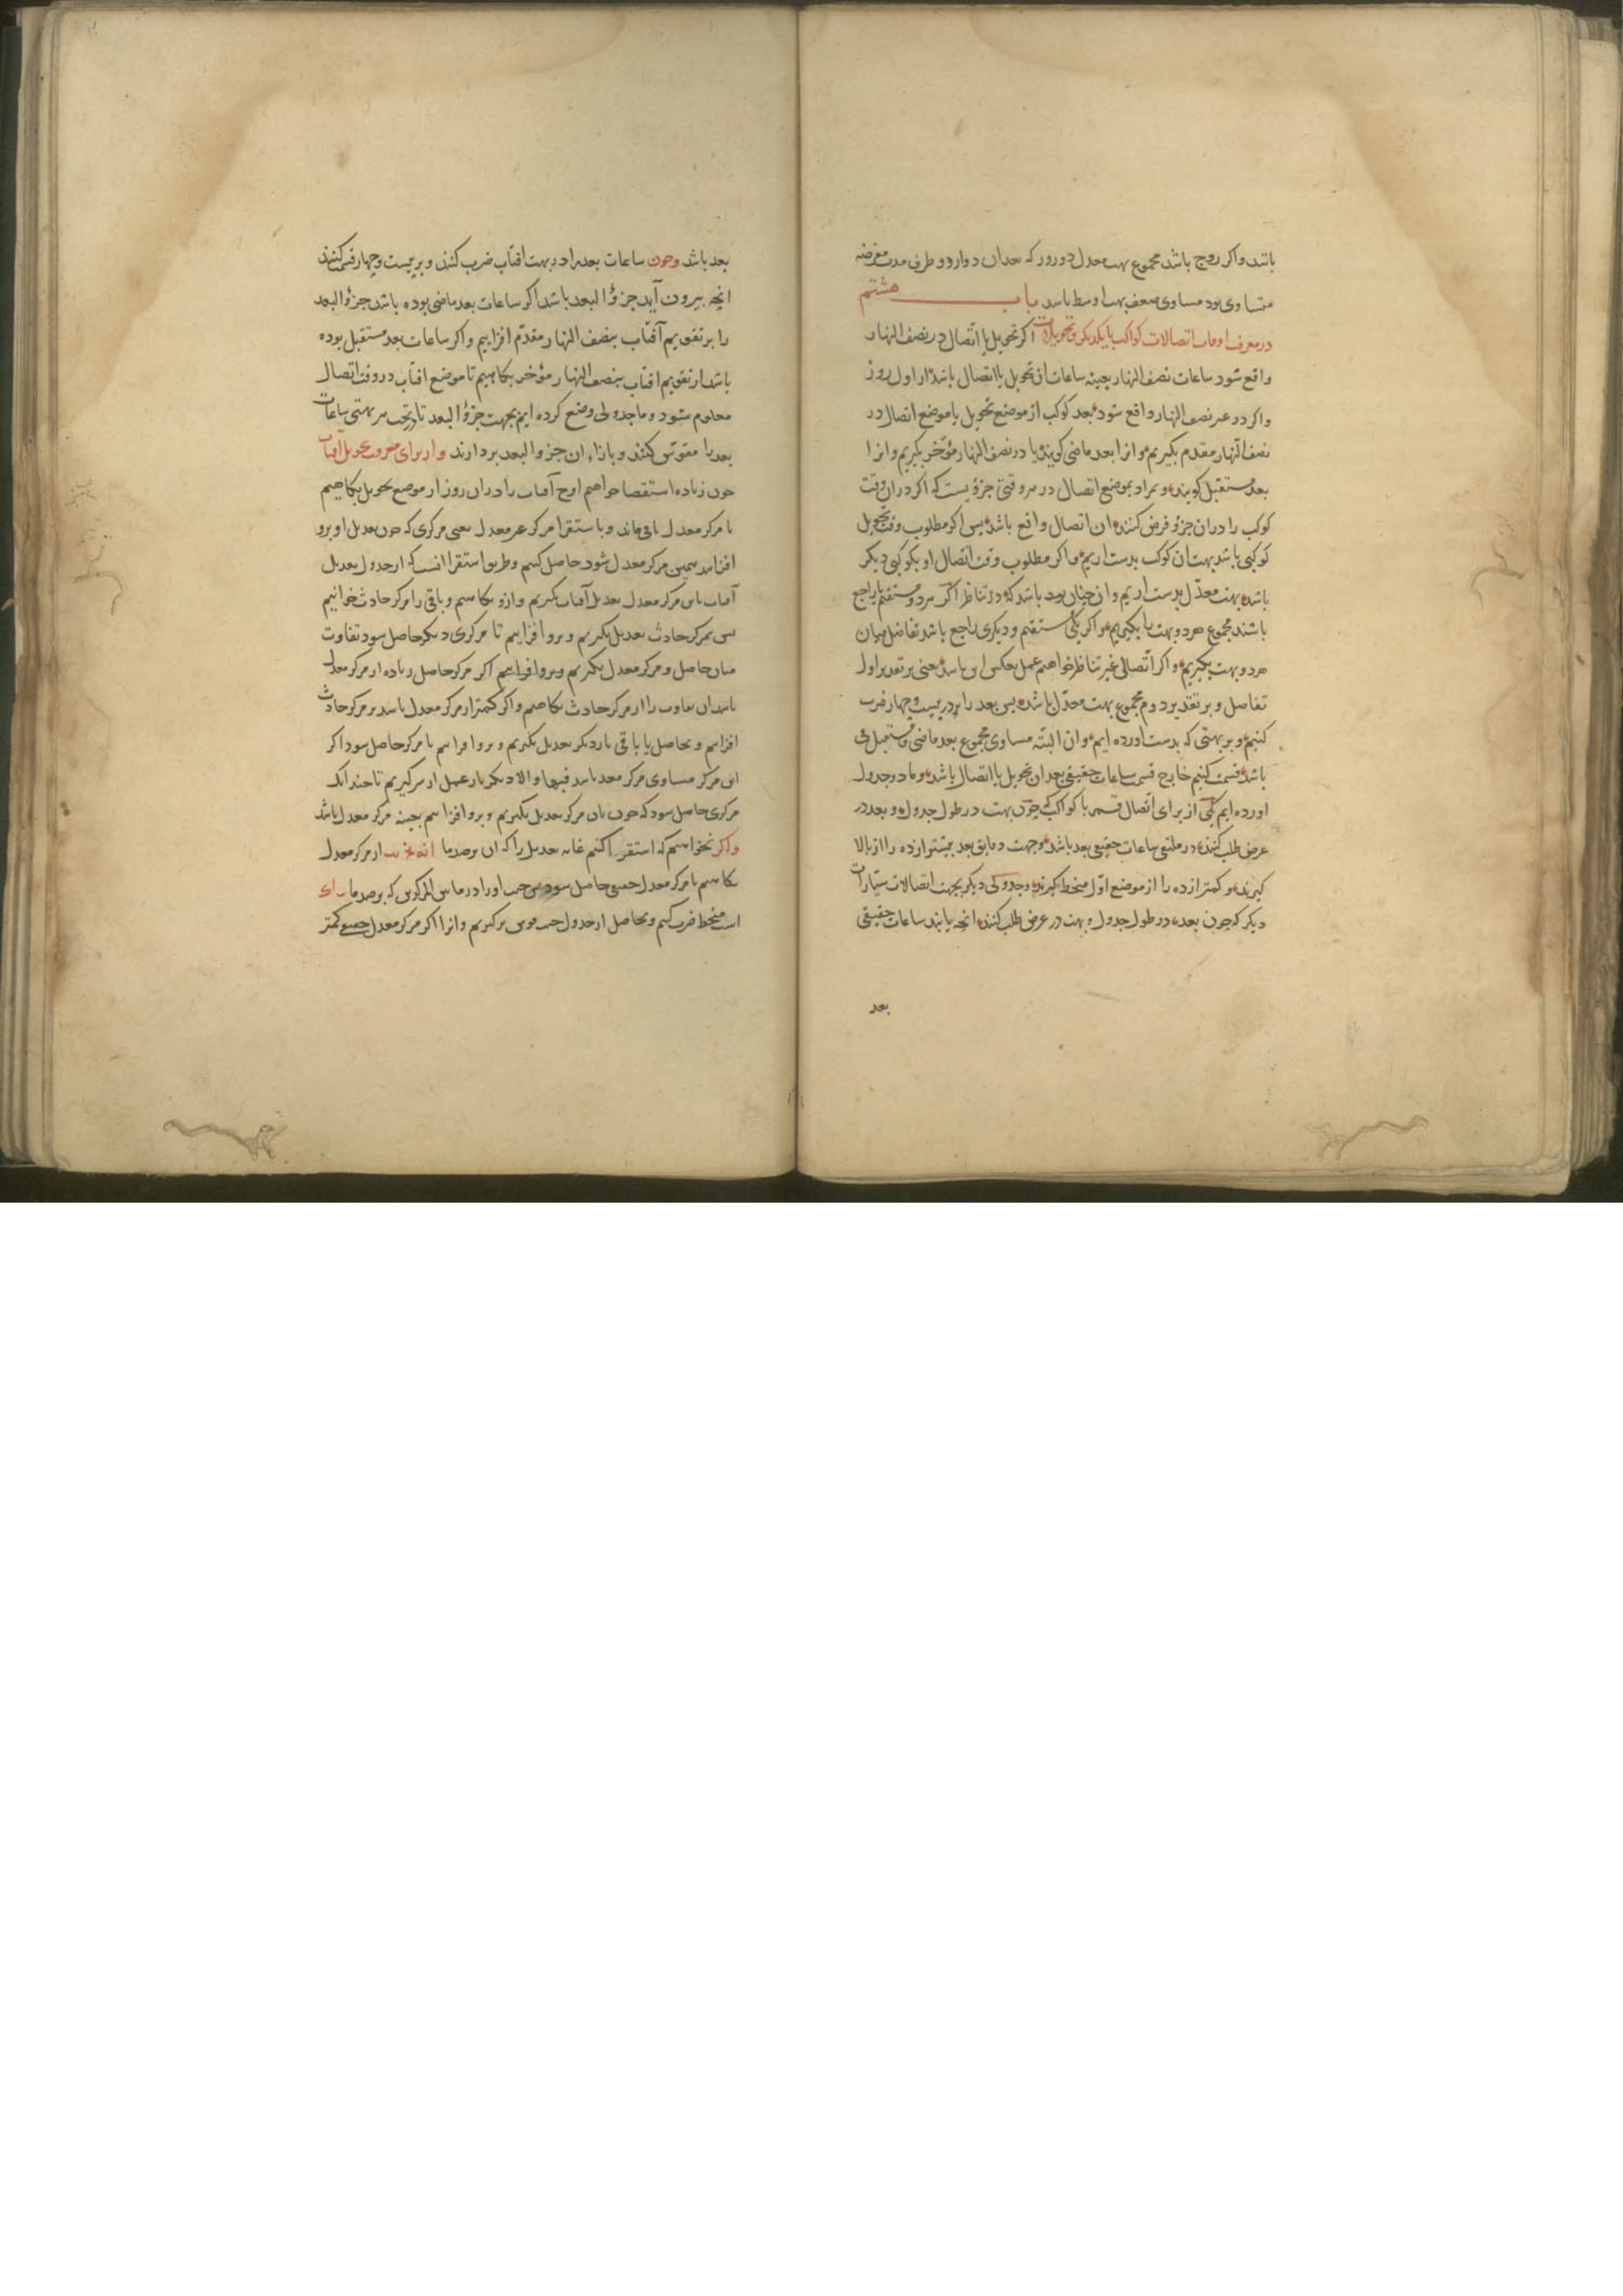 باشد واکر زوج باشد مجموع بهت معدل دو روز که بعدان دو از دو طرف مدت مفروضه
متساوی بود مساوی ضعف بهت اوسط باشد باب هشتم
در معرفت اوقات اتصالات کواکب با یکدیکر و تحویلات اکر تحویل یا اتصال در نصف النهار
واقع شود ساعات نصف النهار بعینه ساعات ان تحویل یا اتصال باشد از اول روز
واکر در غیر نصف النهار واقع شود بعد کوکب از موضع تحویل یا موضع اتصال در
نصف النهار مقدم بکیریم و انرا بعد ماضی کویند یا در نصف النهار مؤخر بکیریم و انرا
بعد مستقبل کویند و مراد بموضع اتصال در هر وقتی جزؤیست که اکر دران وقت
کوکب را دران جزؤ فرض کنند ان اتصال واقع باشد پس اکر مطلوب وقت تحویل
کوکبی باشد بهت ان کوکب بدست اریم و اکر مطلوب وقت اتصال او بکوکبی دیکر
باشد بهت معدّل بدست اریم و ان چنان بود باشد که در تناظر اکر هر دو مستقیم یا راجع
باشند مجموع هر دو بهت را بکیریم و اکر یکی مستقیم و دیکری راجع باشد تفاضل میان
هر دو بهت بکیریم و اکر اتصالی غیر تناظر خواهیم عمل بعکس این باشد یعنی بر تقدیر اول
تفاضل و بر تقدیر دوم مجموع بهت معدّل باشد پس بعد را در بیست و چهار ضرب
کنیم و بر بهتی که بدست اورده ایم و ان البته مساوی مجموع بعد ماضی و مستقبل می
باشد قسمت کنیم خارج قسمت ساعات حقیقی بعد ان تحویل یا اتصال باشد و ما دو جدول
اورده ایم یکی از برای اتصال قمر با کواکب که چون بهت در طول جدول و بعد در
عرض طلب کنند در ملتقی ساعات حقیقی بعد باشد وجهت دقایق بعد بیشتر از ده را از بالا
کیرند و کمتر از ده را از موضع اوّل منحط کیرند و جدولی دیکر بجهت اتصالات سیّارات
دیکر که چون بعد در طول جدول و بهت در عرض طلب کنند انچه یابند ساعات حقیقی
بعد
بعد باشد وچون ساعات بعد را در بهت افتاب ضرب کنند و بر بیست و چهار قسمت کنند
انچه بیرون آید جزؤ البعد باشد اکر ساعات بعد ماضی بوده باشد جزؤ البعد
را بر تقویم آفتاب بنصف النهار مقدّم افزاییم و اکر ساعات بعد مستقبل بوده
باشد از تقویم افتاب بنصف النهار مؤخر بکاهیم تا موضع افتاب در وقت اتصال
معلوم شود و ما جدولی وضع کرده ایم بجهت جزؤ البعد تا در تحت هر بهتی ساعات
بعد را مقوّس کنند و بازاء ان جزو البعد بردارند و از برای معرفت تحویل آفتاب
چون زیاده استقصا خواهیم اوج آفتاب را دران روز از موضع تحویل بکاهیم
تا مرکز معدل باقی ماند و باستقرا مرکز غیر معدل یعنی مرکزی که چون تعدیل او برو
افزایند همین مرکز معدل شود حاصل کنیم و طریق استقرا انست که از جدول تعدیل
آفتاب باین مرکز معدل تعدیل آفتاب بکیریم و ازو بکاهیم و باقی را مرکز حادث خوانیم
پس بمرکز حادث تعدیل بکیریم و برو افزاییم تا مرکزی دیکر حاصل شود تفاوت
میان حاصل و مرکز معدل بکیریم و برو افزاییم اکر مرکز حاصل زیاده از مرکز معدل
باشد ان تفاوت را از مرکز حادث بکاهیم و اکر کمتر از مرکز معدل باشد بر مرکز حادث
افزاییم و بحاصل یا باقی بار دیکر تعدیل بکیریم و برو افزاییم تا مرکز حاصل شود اکر
این مرکز مساوی مرکز معدل باشد فبها و الا دیکر بار عمل از سر کیریم تا چندانک
مرکزی حاصل شود که چون بان مرکز تعدیل بکیریم و برو افزاییم بعینه مرکز معدل باشد
واکر نخواهیم که استقرا کنیم غایه تعدیل را که ان برصد ما از مرکز معدل
بکاهیم تا مرکز معدل حقیقی حاصل شود پس جیب او را در مابین المرکزین که برصد ما
است منحط ضرب کنیم و حاصل از جدول جیب قوس بر کیریم و انرا اکر مرکز معدل حقیقی کمتر